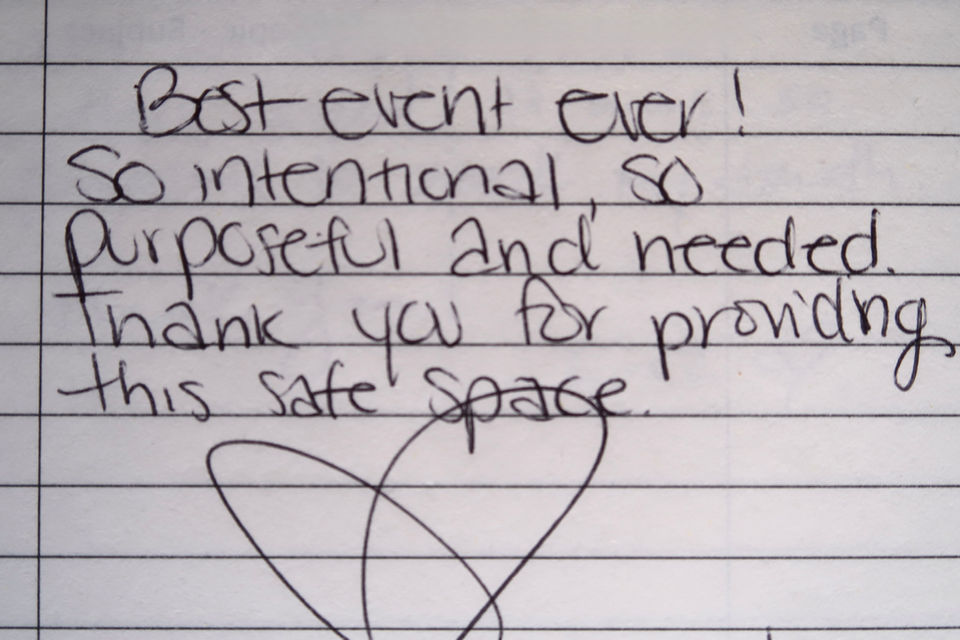 Best event ever!
So intentional, so
purposeful and needed.
Thank you for providing
this safe space.